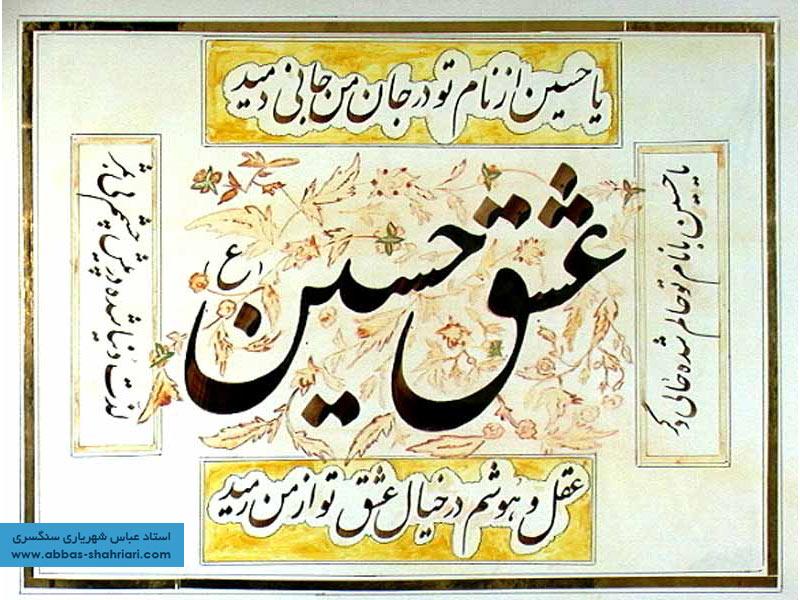 یا حسین از نام تو در جان من جانی دمید
یا حسین با نام تو حالم شده حالی دگر
عشق حسین (ع)
لذت دنیا شده در پیش چشمم بی ثمر
عقل و هوشم در خیال عشق تو از من رمید
استاد عباس شهریاری سنگسری
www.abbas-shahriari.com